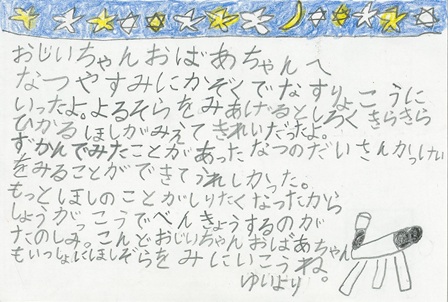 おじいちゃんおばあちゃんへ
なつやすみにかぞくでなすりょこうに
いったよ。よるそらをみあげるとしろくきらきら
ひかるほしがみえてきれいだったよ。
ずかんでみたことがあったなつのだいさんかっけい
をみることができてうれしかった。
もっとほしのことがしりたくなったから
しょうがっこうでべんきょうするのが
たのしみ。こんどおじいちゃんおばあちゃん
もいっしょにほしぞらをみにいこうね。
ゆいより